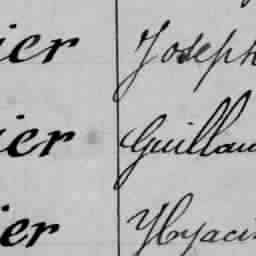 ier Joseph
ier Guillau
ier Hyacin